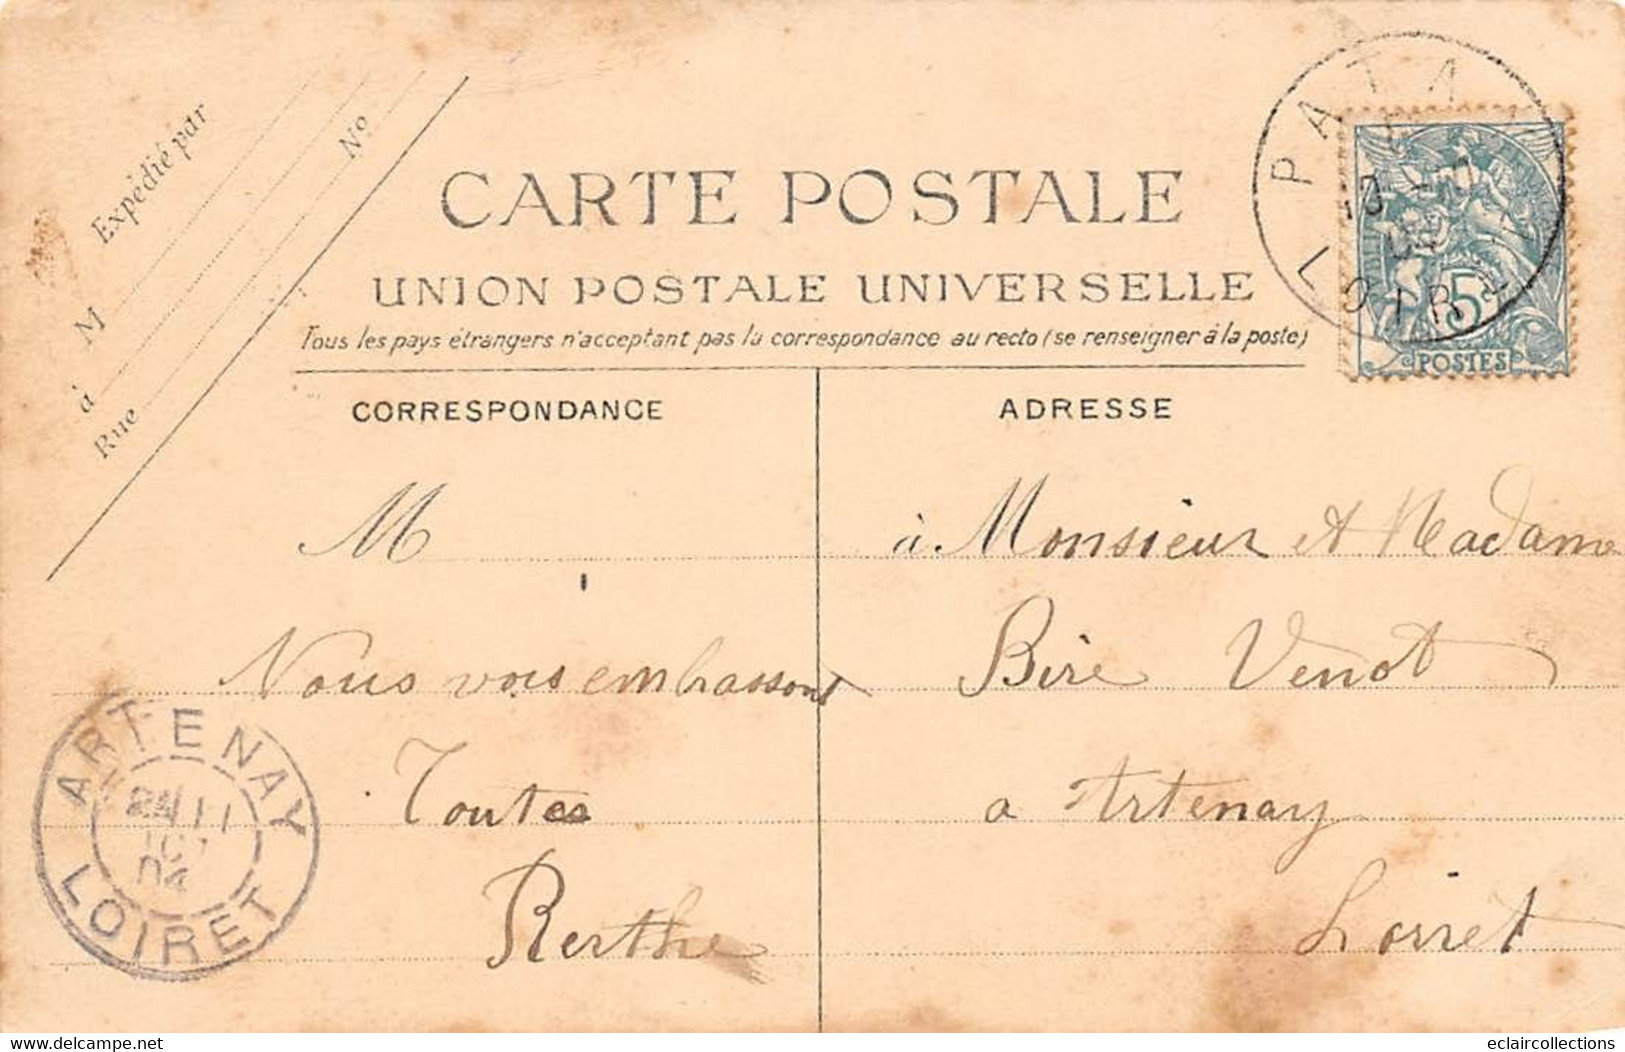 Expédié par
M
à
Rue
Nº
CARTE POSTALE
UNION POSTALE UNIVERSELLE
Tous les pays étrangers n'acceptant pas la correspondance au recto (se renseigner à la poste)
PATAY
LOIRET
5
POSTES
CORRESPONDANCE
M
Nous vous embrassons
Toutes
Berthe
ARTENAY
11
04
LOIRET
ADRESSE
à Monsieur et Madame
Biré Venot
a Artenay
Loiret
eclaircollections